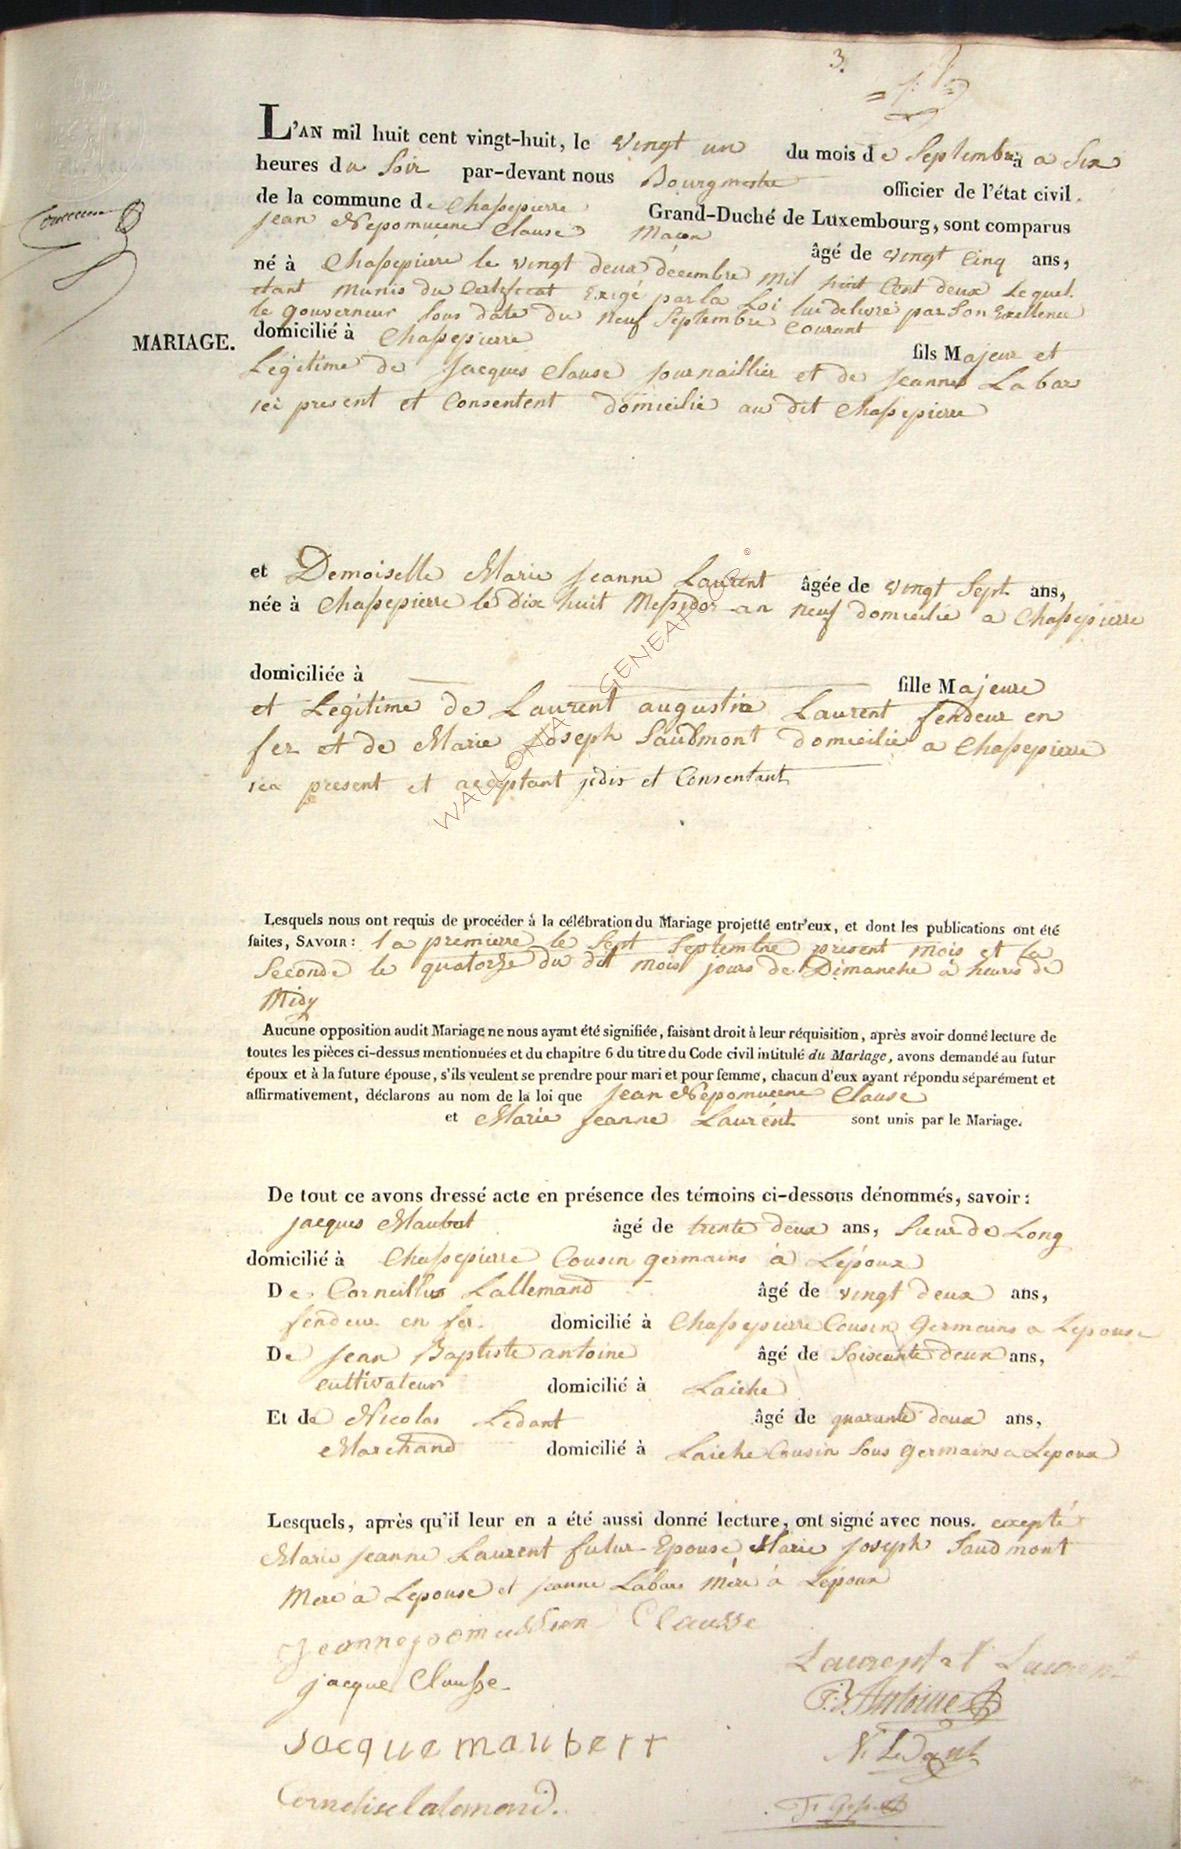 3.
L'AN mil huit cent vingt-huit, le vingt un du mois de Septembre a Six
heures du Soir par-devant nous Bourgmestre officier de l'état civil.
de la commune de Chassepierre Grand-Duché de Luxembourg, sont comparus
Jean Nepomucene Clause Maçon âgé de vingt Cinq ans,
né à Chassepierre le vingt deux decembre mil huit Cent deux Lequel
etant Munis du Certificat Exigé par la Loi lui delivré par Son Exellence
le gouverneur Sous date du neuf Septembre Courant
MARIAGE. domicilié à Chassepierre fils Majeur et
Légitime de Jacques Clause Journaillier et de Jeanne Labar
ici present et Consentent domicilié au dit Chassepierre
et Demoiselle Marie Jeanne Laurent âgée de vingt Sept ans,
née à Chassepierre le dix huit Messidor an neuf domicilié a Chassepierre
domiciliée à fille Majeure
et Légitime de Laurent augustin Laurent fendeur en
fer et de Marie Joseph Saudmont domicilié a Chassepierre
ici present et acceptant jedis et Consentant
WALLONIA GENEAP
Lesquels nous ont requis de procéder à la célébration du Mariage projetté entr'eux, et dont les publications ont été
faites, SAVOIR: la premierre le Sept Septembre present mois et la
Seconde le quatorze du dit mois jours de Dimanche à heures de
Midy
Aucune opposition audit Mariage ne nous ayant été signifiée, faisant droit à leur réquisition, après avoir donné lecture de
toutes les pièces ci-dessus mentionnées et du chapitre 6 du titre du Code civil intitulé du Mariage, avons demandé au futur
époux et à la future épouse, s'ils veulent se prendre pour mari et pour femme, chacun d'eux ayant répondu séparément et
affirmativement, déclarons au nom de la loi que Jean Nepomucene Clause
et Marie Jeanne Laurent sont unis par le Mariage.
De tout ce avons dressé acte en présence des témoins ci-dessous dénommés, savoir:
Jacques Maubert âgé de trente deux ans, Sieur de Long
domicilié à Chassepierre Cousin germains à Lépoux
De Corneillus Lallemand âgé de vingt deux ans,
fendeur en fer. domicilié à Chassepierre Cousin Germains a Lepouse
De Jean Baptiste antoine âgé de Soiscante deux ans,
cultivateur domicilié à Laiche
Et de Nicolas Ledant âgé de quarante deux ans,
Marchand domicilié à Laiche Cousin Sous germains a Lepoux
Lesquels, après qu'il leur en a été aussi donné lecture, ont signé avec nous. excepté
Marie Jeanne Laurent futur Epouse, Marie Joseph Saudmont
Mere a Lepouse et Jeanne Labar Mère à Lépoux
Jeannepomussien Clausse
Laurent Laurent
jacque Clausse
J. B. Antoine
Jacque maubert
N. Ledant
Cornelise lalemand.